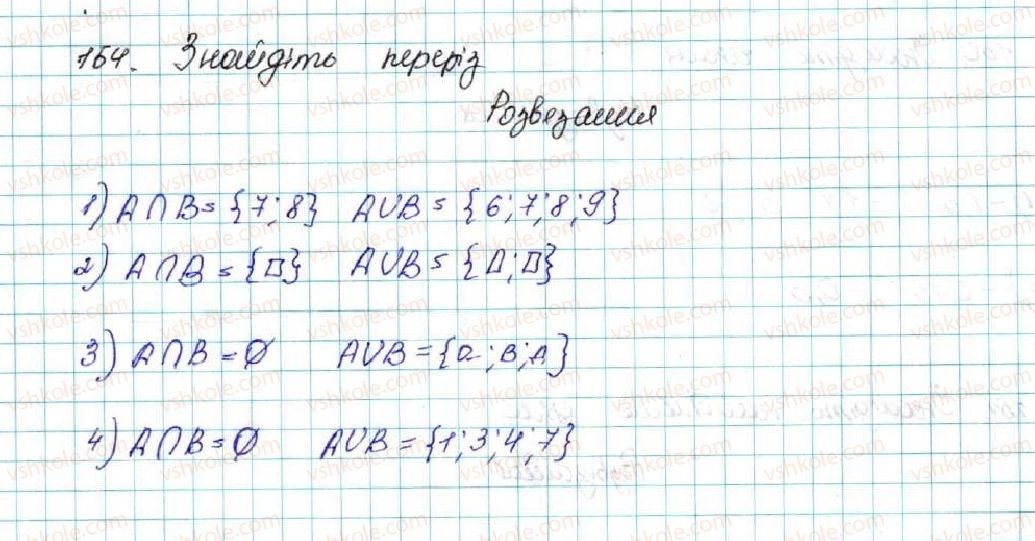 164. Знайдіть переріз
Розвезання
1) A∩B = {7; 8} A∪B = {6; 7; 8; 9}
2) A∩B = {□} A∪B = {Δ; □}
3) A∩B = ∅ A∪B = {a; B; A}
4) A∩B = ∅ A∪B = {1; 3; 4; 7}
vshkole.com